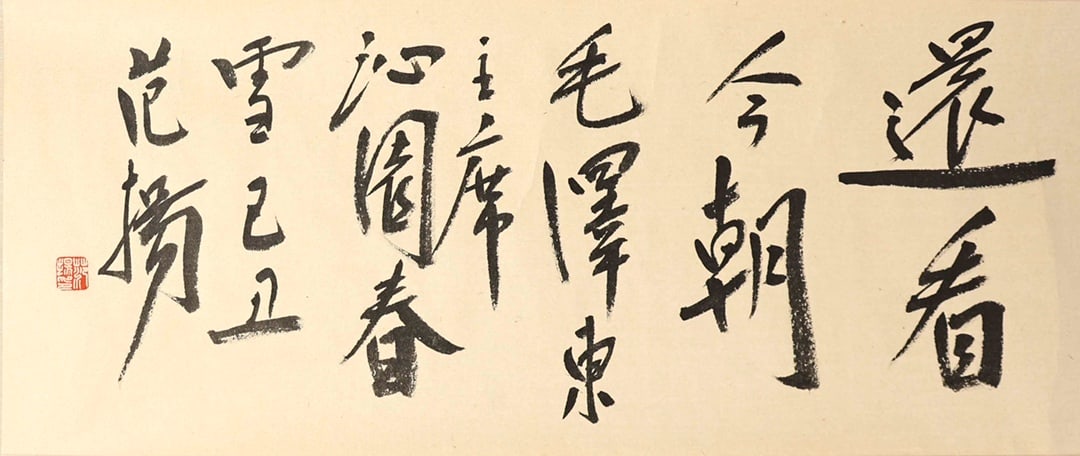 還看
今朝
毛澤東
主席
沁園春
雪己丑
范揚